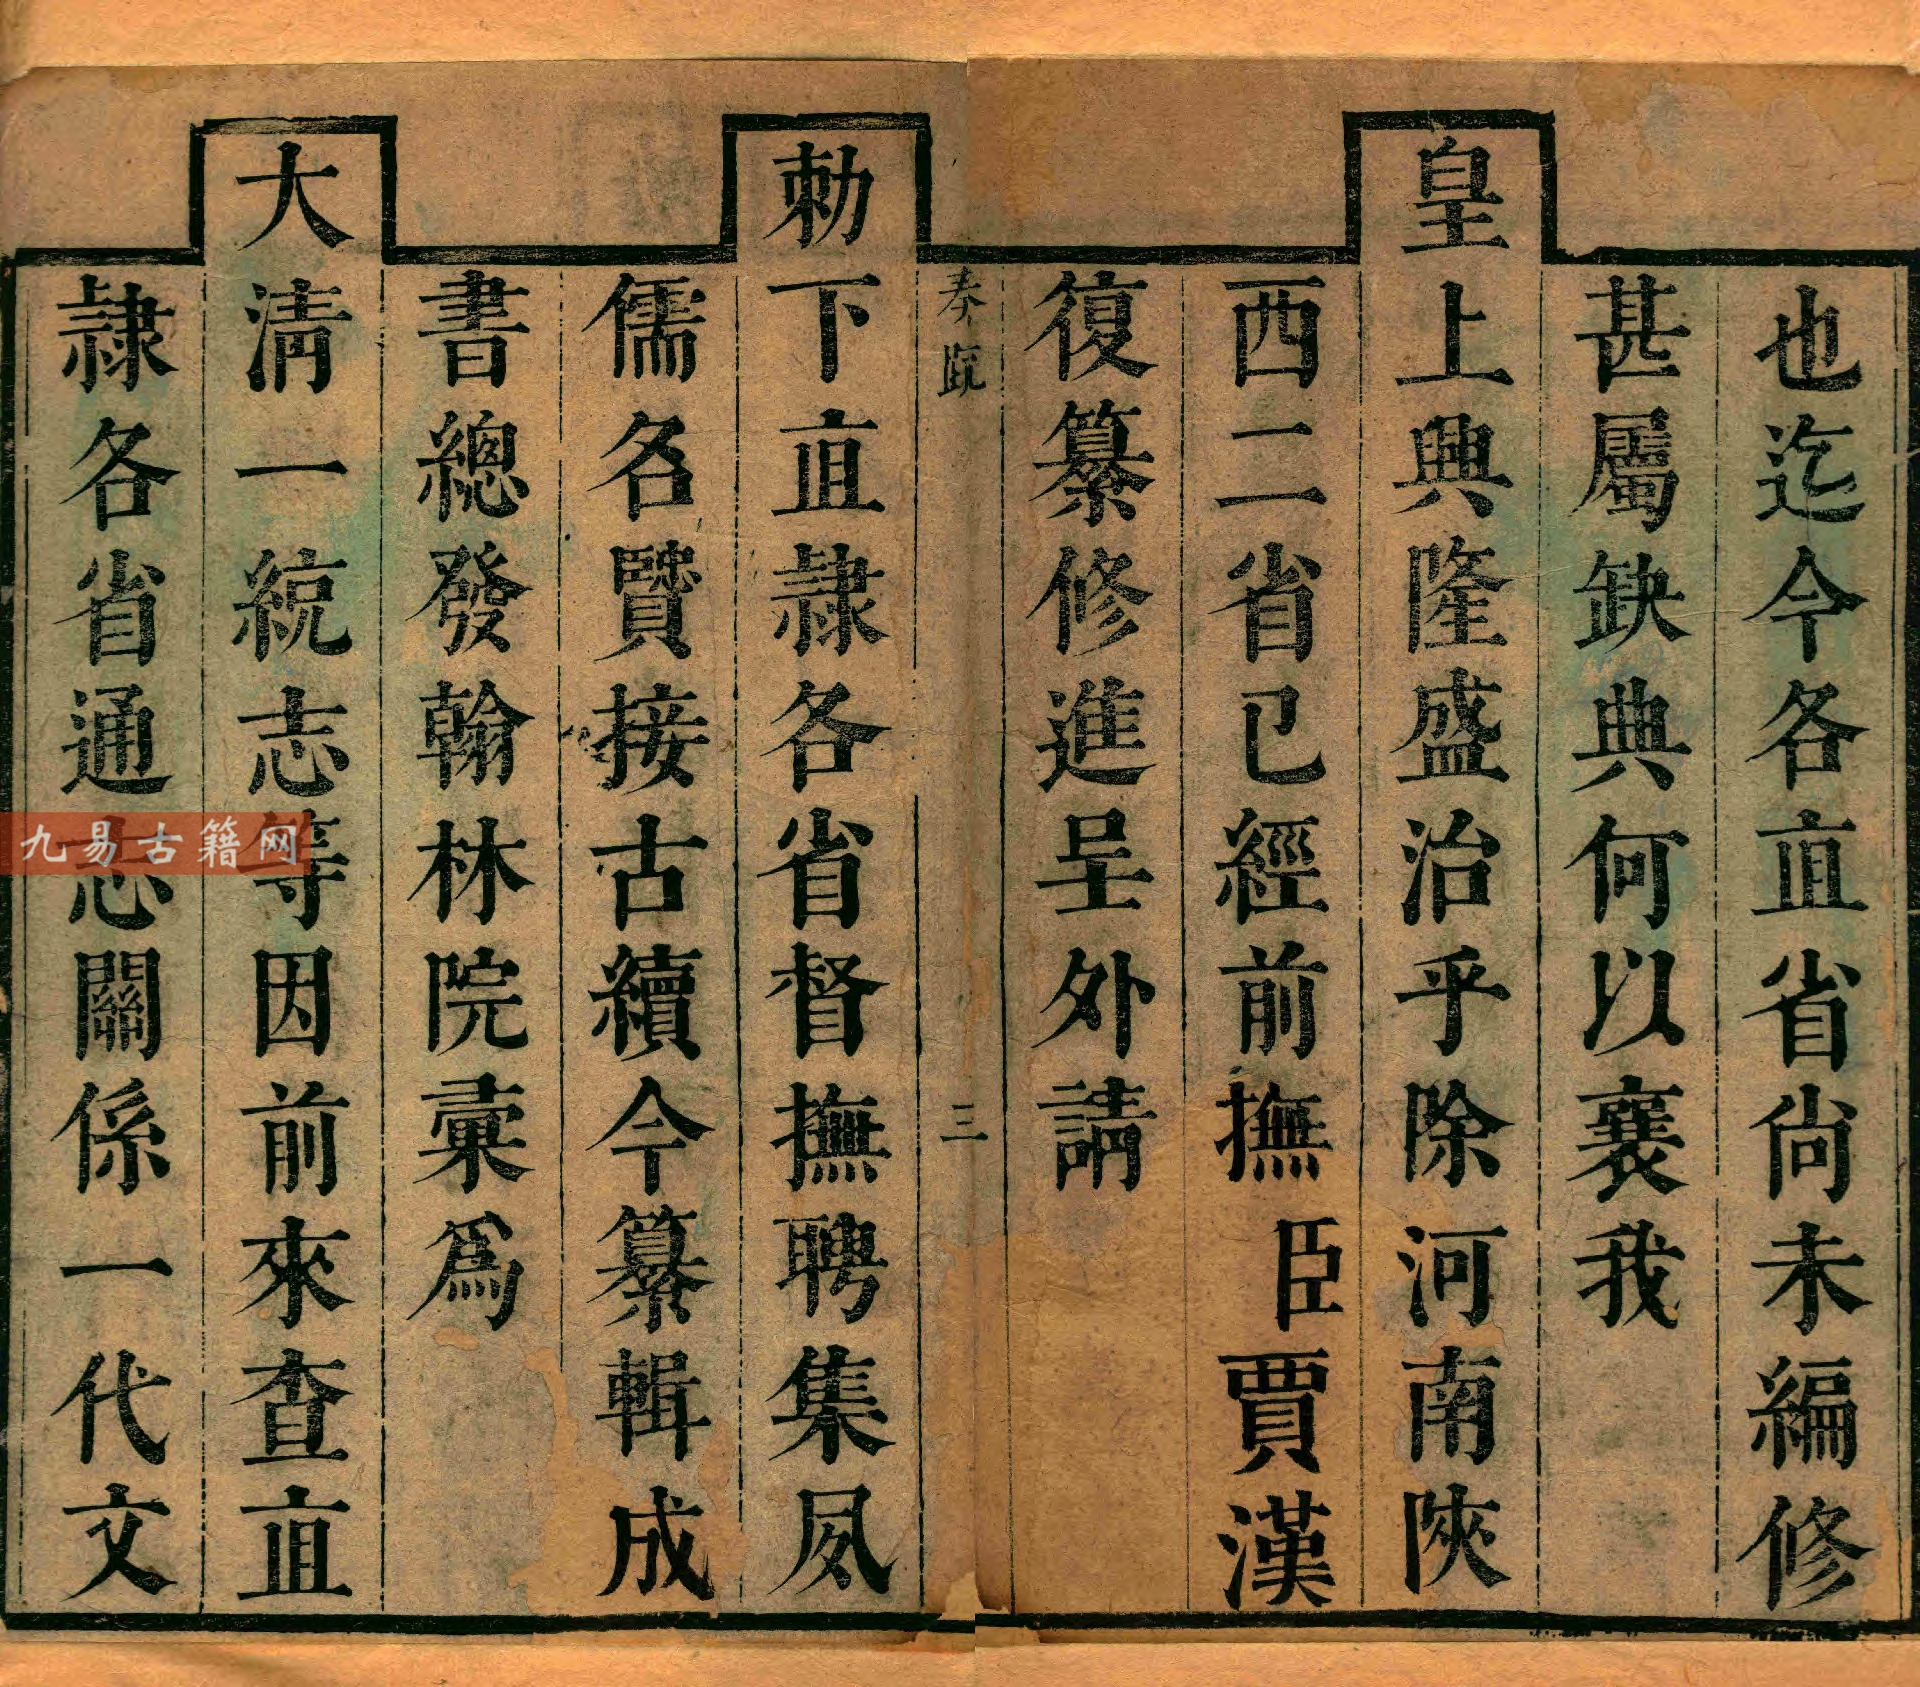 也迄今各直省尚未編修
甚屬缺典何以襄我
皇上興隆盛治乎除河南陝
西二省已經前撫臣賈漢
復纂修進呈外請
奏疏
三
勅下直隸各省督撫聘集夙
儒名賢接古續今纂輯成
書總發翰林院彙爲
大清一統志等因前來查直
隸各省通志關係一代文
九易古籍网